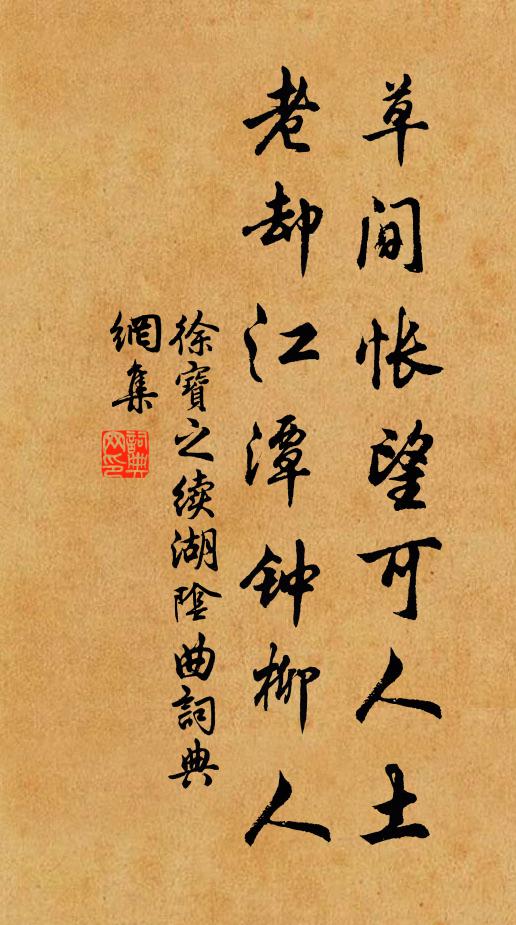 草间怅望可人土
老却江潭钟柳人
徐寶之续湖陰曲詞典
網集
詞典
网印